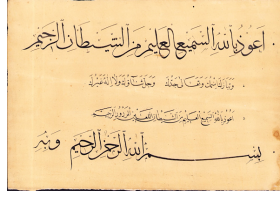 اعوذ بالله السميع العليم من الشيطان الرجيم
وتبارك اسمك وتعالى جدك وجل ثناؤك ولا اله غيرك
اعوذ بالله السميع العليم من الشيطان الرجيم
بسم الله الرحمن الرحيم وبه